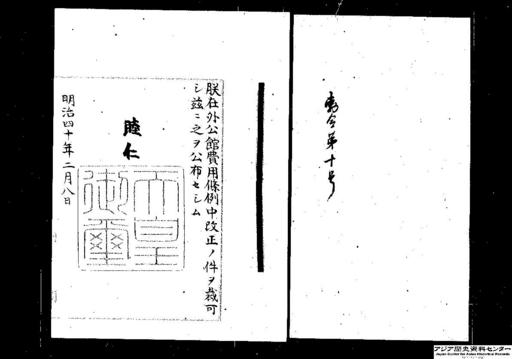 勅令第十号
朕在外公館費用條例中改正ノ件ヲ裁可
シ茲ニ之ヲ公布セシム
睦仁
天皇
御璽
明治四十年二月八日
アジア歴史資料センター
Japan Center for Asian Historical Records